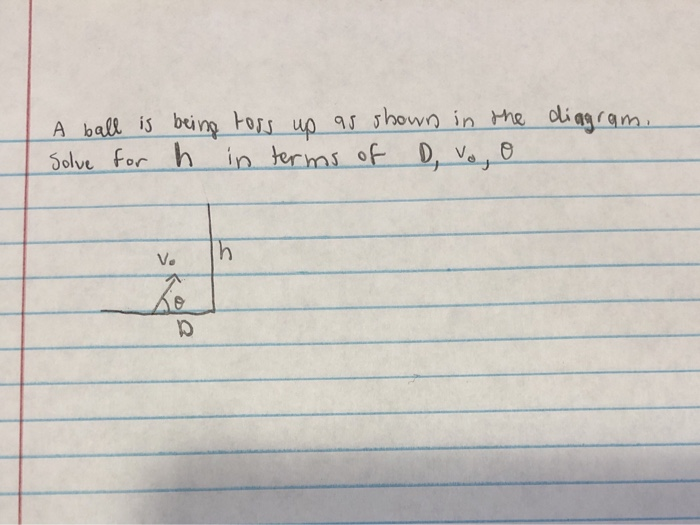 A ball is being toss up as shown in the diagram.
Solve for h in terms of D, v₀, θ
v₀
h
θ
D